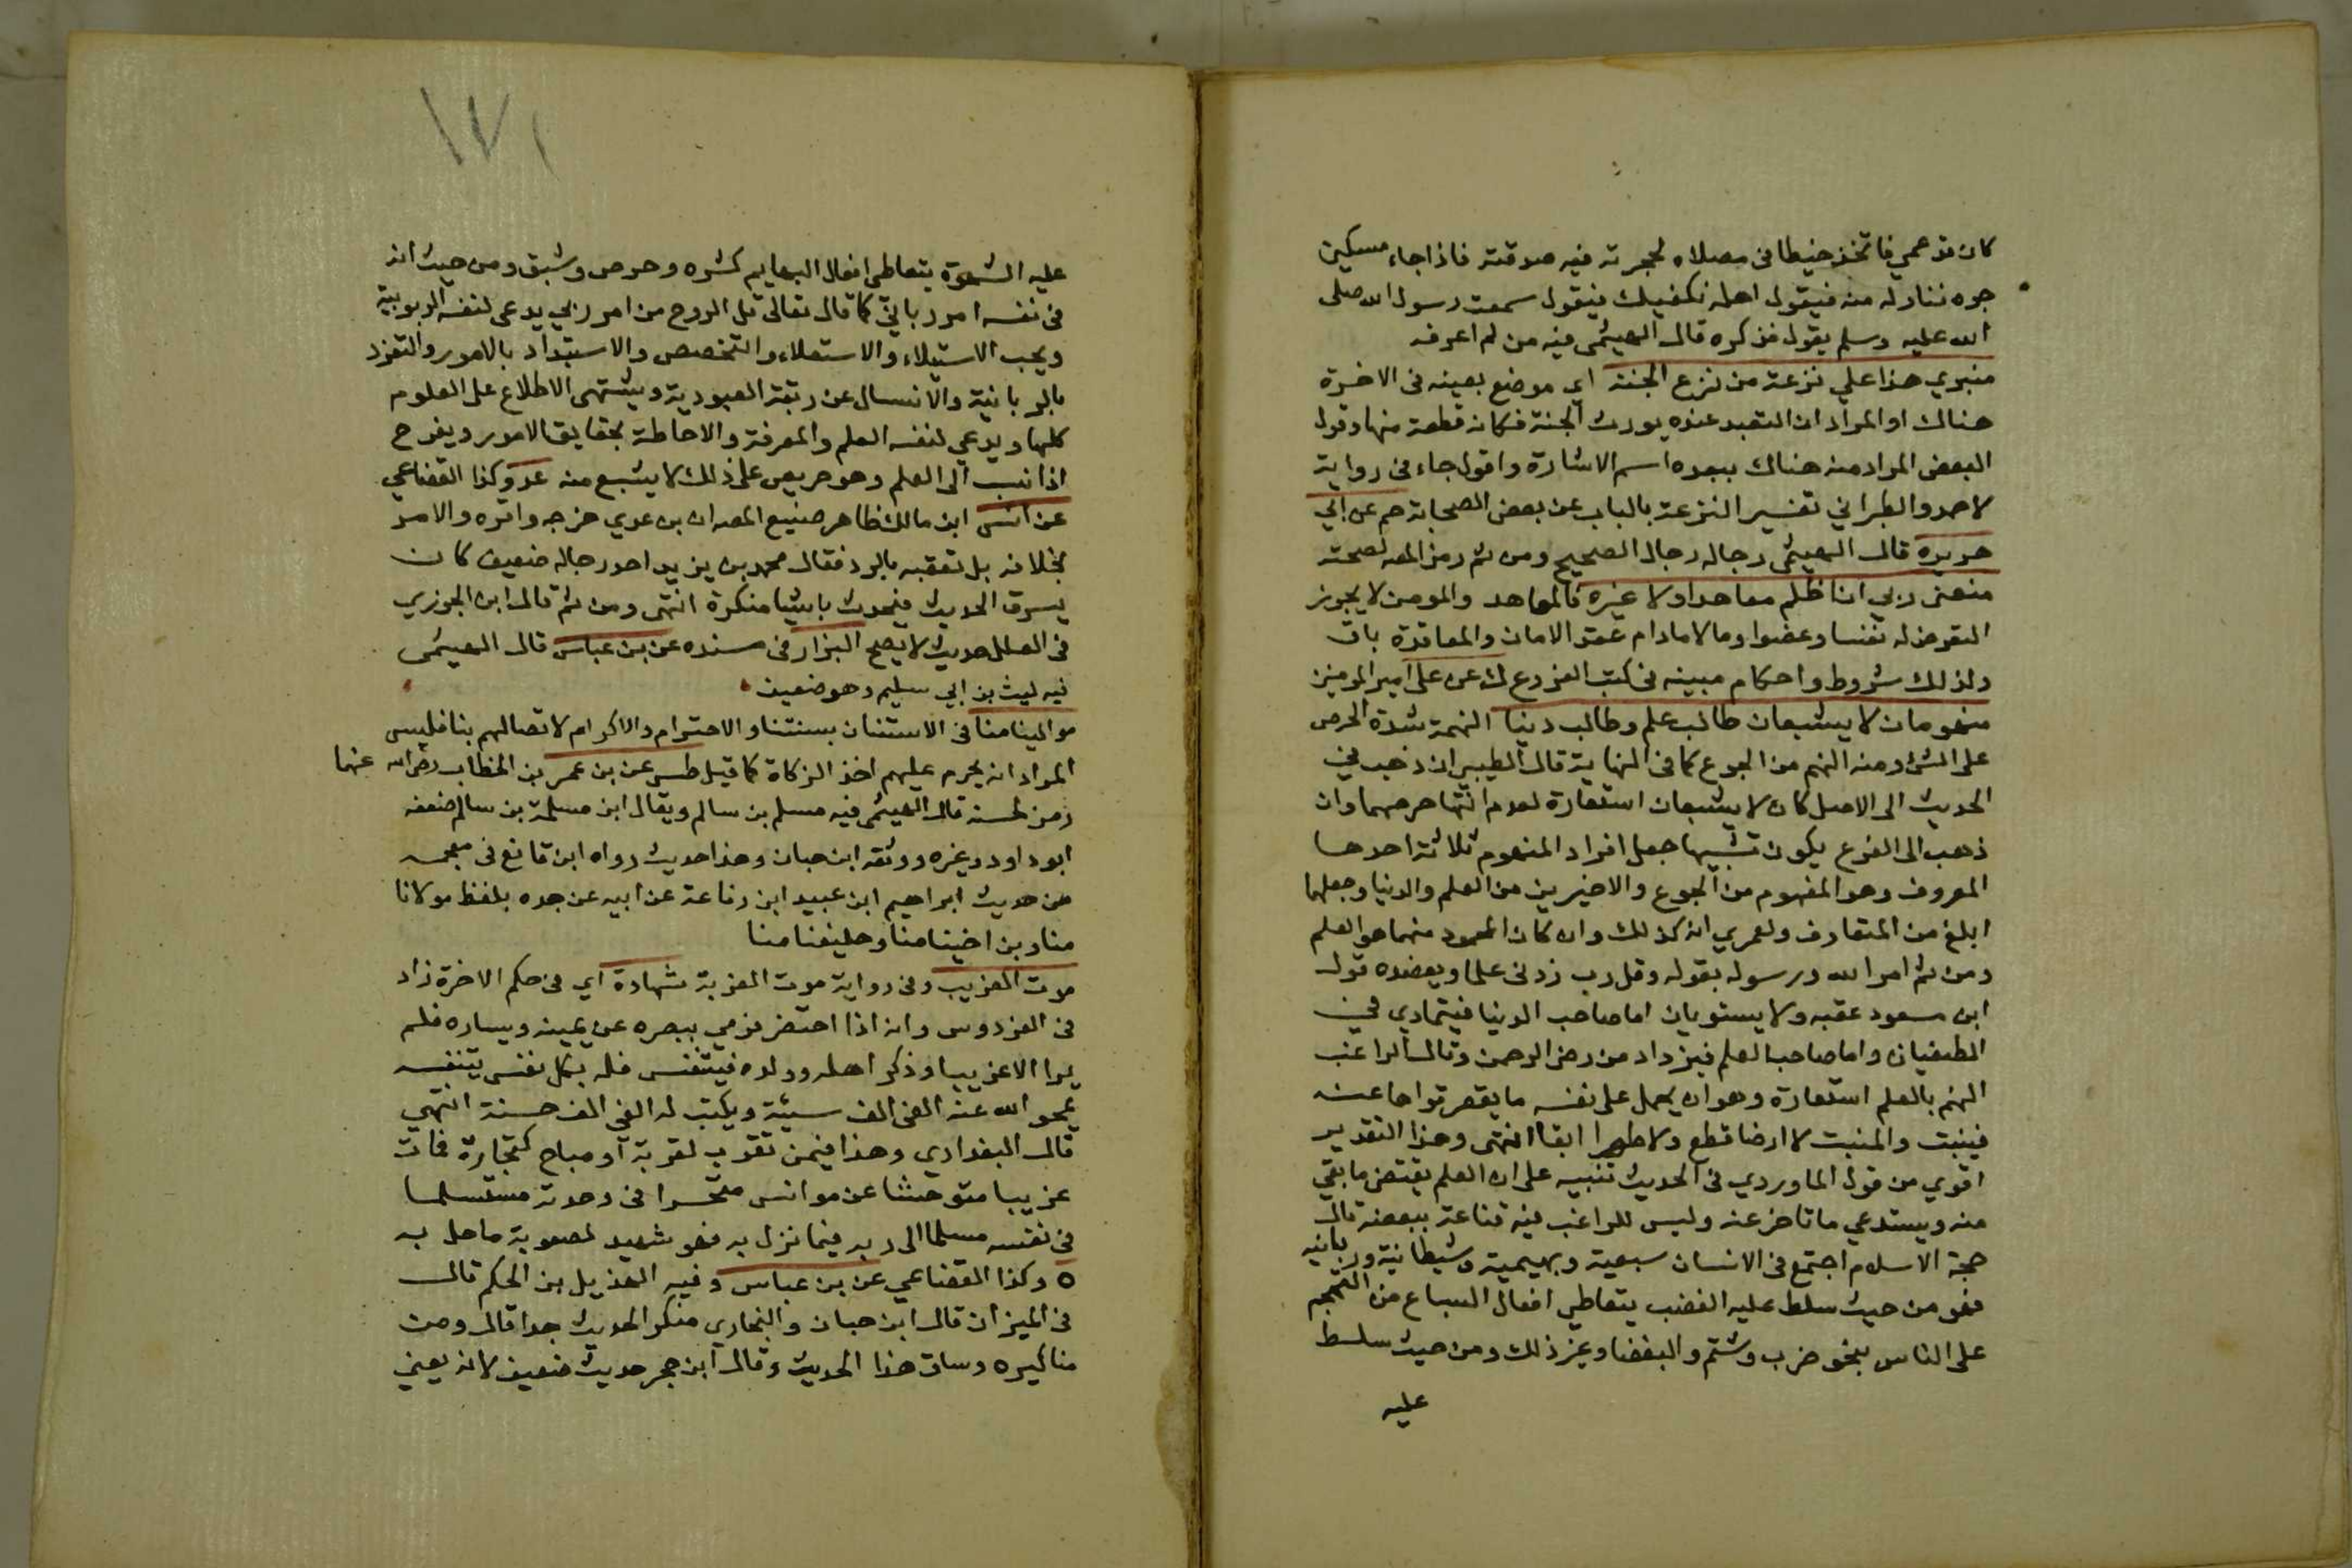 كان قد عمي فاتخذ خيطا في مصلاه لحجرته فيه صدقته فاذا جاء مسكين
جره فناوله منه فيقول اهله نكفيك فيقول سمعت رسول الله صلى
الله عليه وسلم يقول فذكره قال الهيثمي فيه من لم اعرفه
منبري هذا علي نزعة من نزع الجنة اي موضع بعينه في الاخرة
هناك او المراد ان التعبد عنده يورث الجنة فكانه قطعة منها وقول
البعض المراد منه هناك يبعده اسم الاشارة واقول جاء في رواية
لاحمد والطبراني تفسير النزعة بالباب عن بعض الصحابة حم عن ابي
هريرة قال الهيثمي رجاله رجال الصحيح ومن ثم رمز المصه لصحته
منعني ربي ان اظلم معاهدا ولا غيره فالمعاهد والمومن لا يجوز
التعرض له نفسا وعضوا وما لا مادام عقد الامان والمعاقدة باق
ولذلك شروط واحكام مبينه في كتب الفروع ك عن علي امير المومنين
منهومان لا يشبعان طالب علم وطالب دنيا النهمة شدة الحرص
على الشي ومنه النهم من الجوع كما في النهاية قال الطيبي ان ذهب في
الحديث الى الاصل كان لا يشبعان استعارة لعدم انتها حرصهما وان
ذهب الى الفرع يكون تشبيها جعل افراد المنهوم ثلاثة احدها
المعروف وهو المنهوم من الجوع والاخيرين من العلم والدنيا وجعلهما
ابلغ من المتعارف ولعمري انه كذلك وان كان المحمود منهما هو العلم
ومن ثم امر الله ورسوله بقوله وقل رب زدني علما ويعضده قول
ابن مسعود عقبه ولا يستويان اما صاحب الدنيا فيتمادي في
الطغيان واما صاحب العلم فيزداد من رضي الرحمن وقال الراغب
النهم بالعلم استعارة وهو ان يحمل على نفسه ما يقصر قواها عنه
فينبت والمنبت لا ارضا قطع ولا ظهرا ابقا انتهى وهذا التقدير
اقوي من قول الماوردي في الحديث تنبيه على ان العلم يقتضي ما بقي
منه ويستدعي ما تاخر عنه وليس للراغب فيه قناعة ببعضه قال
حجة الاسلام اجتمع في الانسان سبعية وبهيمية وشيطانية وربانيه
فهو من حيث سلط عليه الغضب يتعاطي افعال السباع من التهجم
على الناس بنحو ضرب وشتم والبغضا وغير ذلك ومن حيث سلط
عليه
١٧١
عليه الشهوة يتعاطى افعال البهايم كشره وحرص وشبق ومن حيث انه
في نفسه امر رباني كما قال تعالى قل الروح من امر ربي يدعى لنفسه الربوبية
ويحب الاستيلاء والاستعلاء والتخصص والاستبداد بالامور والتفرد
بالربانية والانسلال عن ربقة العبودية ويشتهى الاطلاع على العلوم
كلها ويدعي لنفسه العلم والمعرفة والاحاطة بحقايق الامور ويفرح
اذا نسب الى العلم وهو حريص على ذلك لا يشبع منه عد وكذا القضاعي
عن انس ابن مالك ظاهر صنيع المصه ان بن عدي خرجه واقره والامر
بخلافه بل تعقبه بالرد فقال محمد بن يزيد احد رجاله ضعيف كان
يسرق الحديث فيحدث باشيا منكرة انتهى ومن ثم قال ابن الجوزي
في العلل حديث لا يصح البزار في مسنده عن بن عباس قال الهيثمي
فيه ليث بن ابي سليم وهو ضعيف
موالينا منا في الاستنان بسنتنا والاحترام والاكرام لاتصالهم بنا فليس
المراد انه يحرم عليهم اخذ الزكاة كما قيل طس عن بن عمر بن الخطاب رضي الله عنهما
رمز لحسنه قال الهيثمي فيه مسلم بن سالم ويقال ابن مسلمة بن سالم ضعفه
ابو داود وغيره ووثقه ابن حبان وهذا حديث رواه ابن قانع في معجمه
من حديث ابراهيم ابن عبيد ابن رفاعة عن ابيه عن جده بلفظ مولانا
منا وبن اختنا منا وحليفنا منا
موت الغريب وفي رواية موت الغربة شهادة اي في حكم الاخرة زاد
في الفردوس وانه اذا احتضر فرمي ببصره عن يمينه ويساره فلم
يرا الا غريبا وذكر اهله وولده فيتنفس فله بكل نفس يتنفسه
يمحو الله عنه الفي الف سيئة ويكتب له الفي الف حسنة انتهي
قال البغدادي وهذا فيمن تغرب لقربة او مباح كتجارة فمات
غريبا متوحشا عن موانس متحسرا في وحدته مستسلما
في نفسه مسلما الى ربه فيما نزل به فهو شهيد لصعوبة ما حل به
ه وكذا القضاعي عن بن عباس وفيه الهذيل بن الحكم قال
في الميزان قال ابن حبان والبخاري منكر الحديث جدا قال ومن
مناكيره وساق هذا الحديث وقال ابن حجر حديث ضعيف لانه يعني